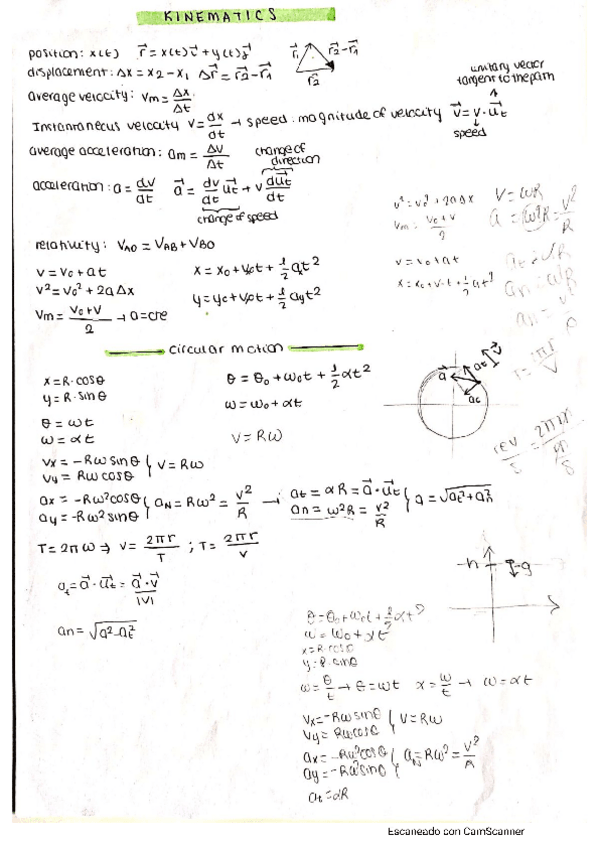 KINEMATICS
position: x(t) r⃗ = x(t)i⃗ + y(t)j⃗
r⃗₁ r⃗₂-r⃗₁
r⃗₂
displacement: Δx = x₂ - x₁ Δr⃗ = r⃗₂ - r⃗₁
unitary vector
tangent to the path
average velocity: Vm = Δx/Δt
Instantaneus velocity V = dx/dt → speed: magnitude of velocity v⃗ = v·u⃗t
speed
average acceleration: am = ΔV/Δt
change of
direction
acceleration: a = dv/dt a⃗ = dv/dt u⃗t + v du⃗t/dt
change of speed
v² = v₀² + 2aΔx V = ωR
Vm = (V₀+V)/2 a = ω²R = v²/R
relativity: V_AO = V_AB + V_BO
v = v₀ + at
V = V₀ + at x = x₀ + V₀t + 1/2 at²
x = x₀ + v₀t + 1/2 at²
V² = V₀² + 2aΔx
y = y₀ + V₀t + 1/2 ayt²
Vm = (V₀+V)/2 → a = cte
circular motion
x = R·cosθ θ = θ₀ + ω₀t + 1/2 αt²
y = R·sinθ ω = ω₀ + αt
a⃗ at v⃗
ac
θ = ωt
ω = αt V = Rω
Vx = -Rω sinθ } V = Rω
Vy = Rω cosθ
rev/s = 2π
ax = -Rω²cosθ } aN = Rω² = v²/R → at = αR = a⃗·u⃗t } a = √(at²+an²)
ay = -Rω²sinθ an = ω²R = v²/R
T = 2πω ⇒ V = 2πr/T ; T = 2πr/V
h -g
at = a⃗·u⃗t = a⃗·v⃗/|v|
an = √(a²-at²)
θ = θ₀ + ω₀t + 1/2 αt²
ω = ω₀ + αt
x = R·cosθ
y = R·sinθ
ω = θ/t → θ = ωt α = ω/t → ω = αt
Vx = -Rω sinθ } V = Rω
Vy = Rω cosθ
ax = -Rω²cosθ } aN = Rω² = v²/R
ay = -Rω²sinθ
at = αR
Escaneado con CamScanner